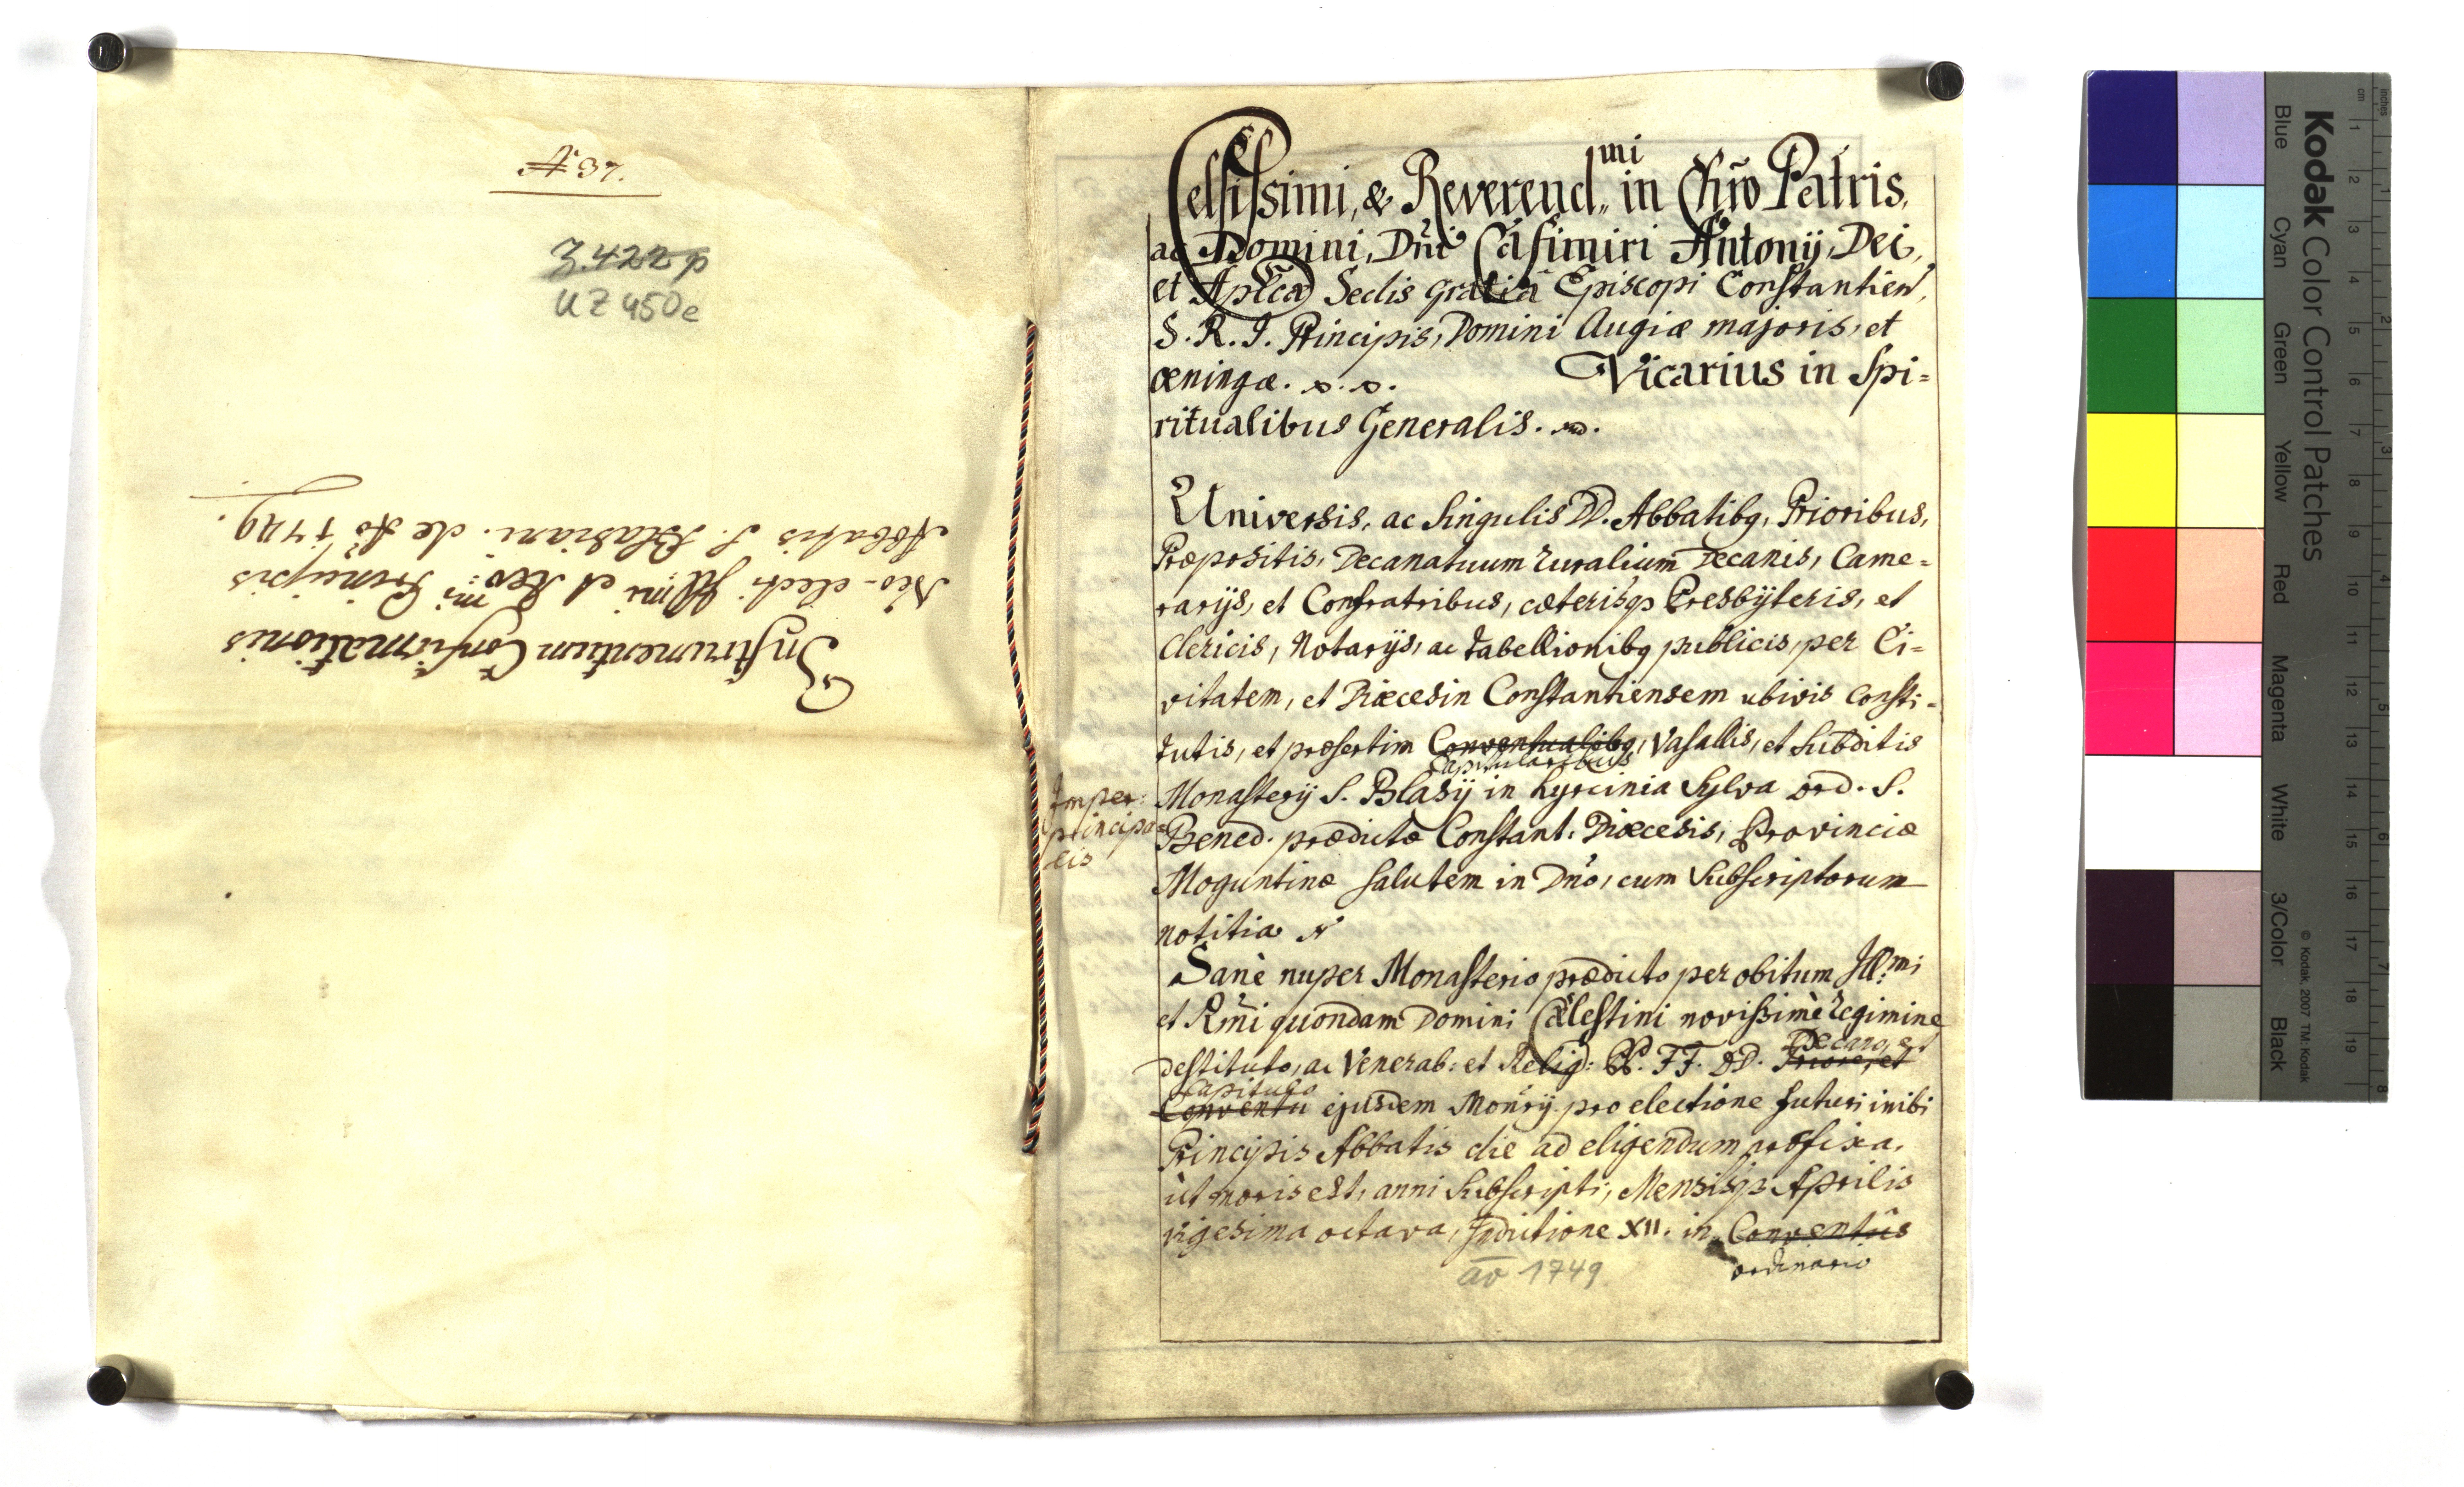 N 37.
Z. 422 p
UZ 450e
Instrumentum Confirmationis
Neo-electi Illmi et Rev:mi Principis
Abbatis S. Blasiani. de Ao 1749.
Celsissimi, & Reverend,,mi in Chro Patris,
ac Domini, Dni Casimiri Antonij, Dei,
et Aplcæ Sedis gratiâ Episcopi Constantien,
S. R. I. Principis, Domini Augiæ majoris, et
œningæ. Vicarius in Spi=
ritualibus Generalis.
Universis, ac Singulis DD. Abbatibq, Prioribus,
Præpositis, Decanatuum ruralium Decanis, Came=
rarijs, et Confratribus, cæterisqz Presbÿteris, et
Clericis, Notarijs, ac tabellionibq publicis, per Ci=
vitatem, et Diœcesin Constantiensem ubivis consti=
tutis, et præsertim Conventualibq, Vasallis, et Subditis
Capitularibus
Imper:
principa=
lis
Monasterij S. Blasij in hyrcinia Sylva ord. S.
Bened. prædictæ Constant: Diœcesis, Provinciæ
Moguntinæ Salutem in Dno, cum Subscriptorum
notitia
Sanè nuper Monasterio prædicto per obitum Ill:mi
et Rmi quondam Domini Cœlestini novissimè regimine
Decano, et
destituto, ac Venerab: et Relig: PP. FF. DD. Priore, et
Capitulo
Conventu ejusdem Monrij pro electione futuri inibi
Principis Abbatis die ad eligendum præfixa,
ùt moris est, anni Subscripti, Mensisqz Aprilis
vigesima octava, Indictione XII. in Conventûs
ordinario
ao 1749